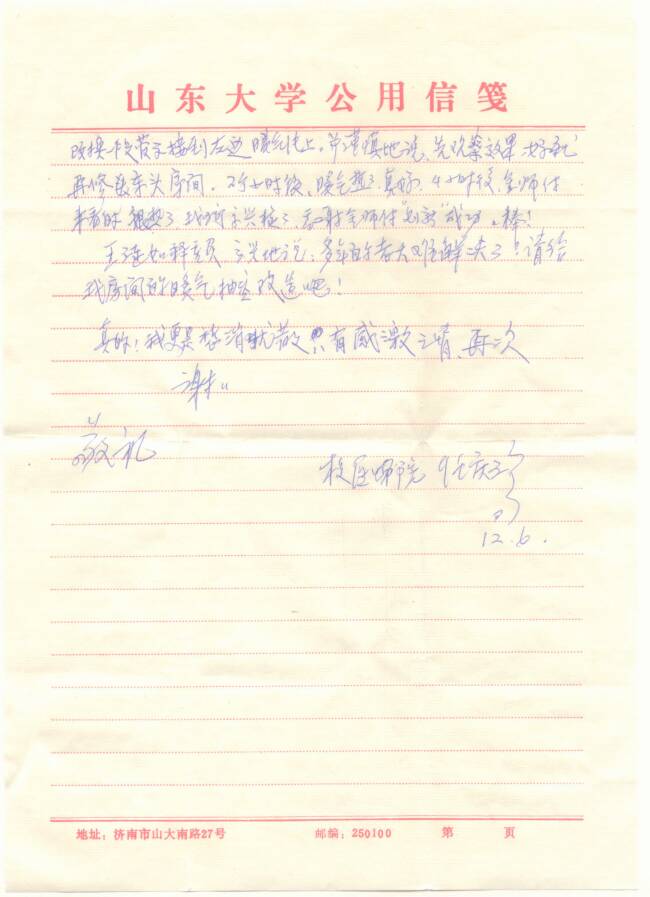 山东大学公用信笺
改换一根管子接到左边暖气片上。并谨慎地说,先观察效果好,
再修东头房间。2小时后,暖气热了,真好,4小时后,金师付
来看时很热了,我们高兴极了,金师付"创新"成功,棒!
王连如释高兴地说:多年的老大难解决了!请给
我房间的暖气抽空改造吧!
真的!我更是,只有感激之情,再次
谢谢
敬礼
校医院
12.6.
地址:济南市山大南路27号 邮编:250100 第 页